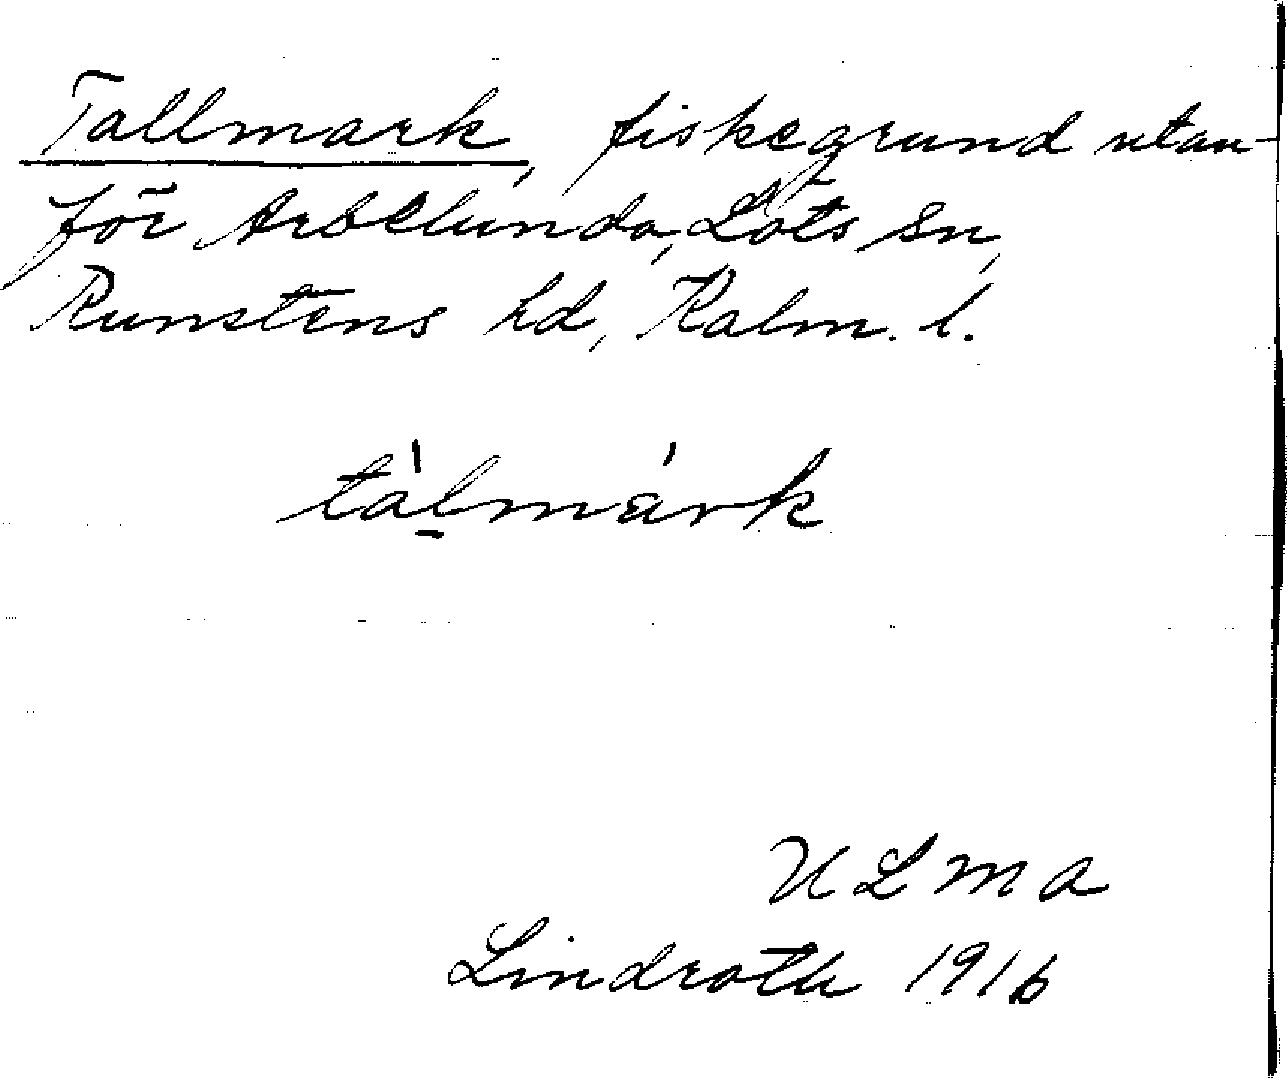 Tallmark, fiskegrund utan-
för Arbelunda, Löts sn,
Runstens hd, Kalm. l.
tàl̲márk
ULMA
Lindroth 1916